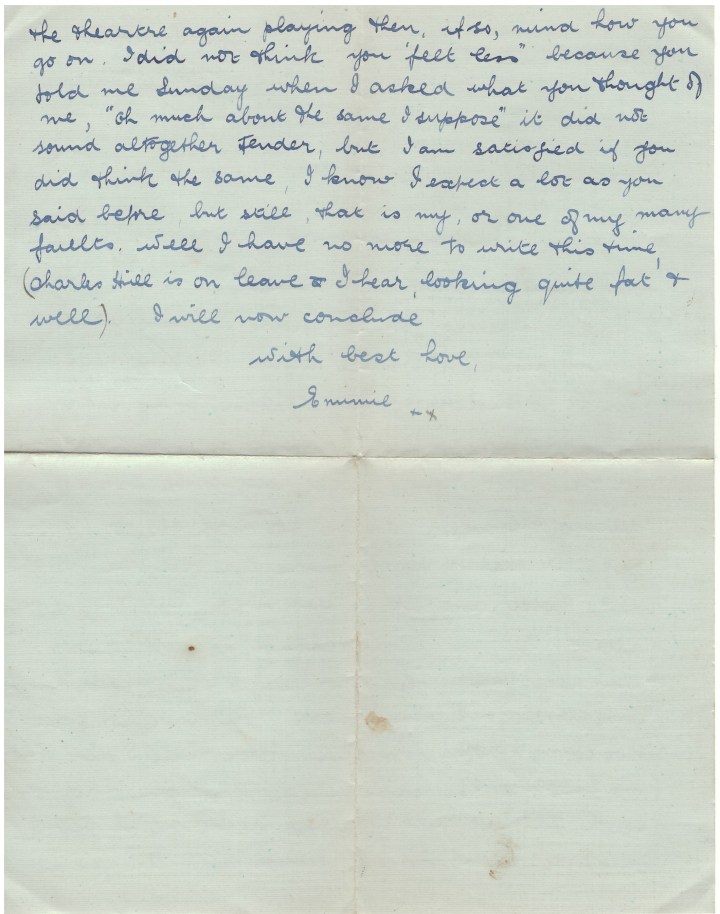 the theartre again playing then, if so, mind how you
go on. I did not think you "felt less" because you
told me Sunday when I asked what you thought of
me, "Oh much about the same I suppose" it did not
sound altogether tender, but I am satisfied if you
did think the same, I know I expect a lot as you
said before, but still, that is my, or one of my many
faults. Well I have no more to write this time,
(Charles Hill is on leave I hear, looking quite fat &
well). I will now conclude
With best love,
Emmie ++